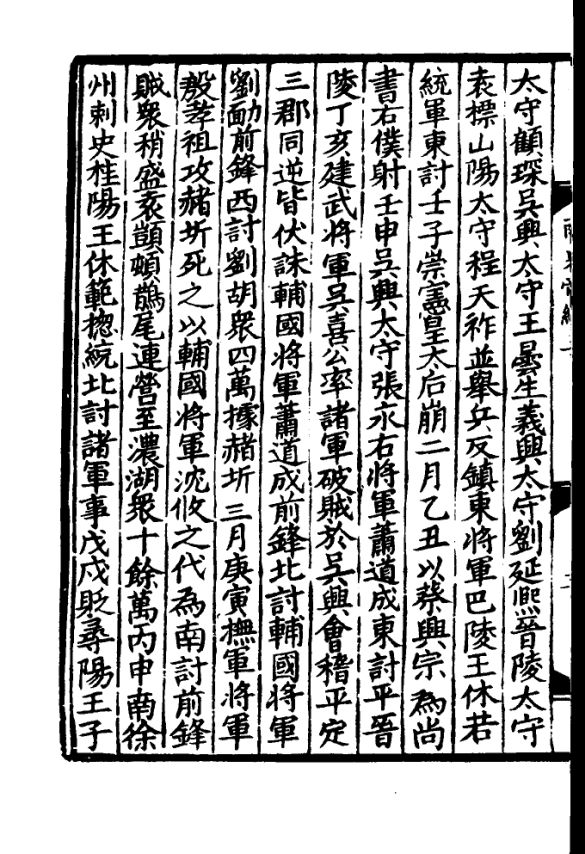 太守顧琛吳興太守王曇生義興太守劉延熈晉陵太守
袁標山陽太守程天祚並舉兵反鎮東將軍巴陵王休若
統軍東討壬子崇憲皇太后崩二月乙丑以蔡興宗為尚
書右僕射壬申吳興太守張永右將軍蕭道成東討平晉
陵丁亥建武將軍吳喜公率諸軍破賊於吳興會稽平定
三郡同逆皆伏誅輔國將軍蕭道成前鋒北討輔國將軍
劉勔前鋒西討劉胡衆四萬據赭圻三月庚寅撫軍將軍
殷孝祖攻赭圻死之以輔國將軍沈攸之代為南討前鋒
賊衆稍盛袁顗頓鵲尾連營至濃湖衆十餘萬丙申南徐
州刺史桂陽王休範揔統北討諸軍事戊戌貶尋陽王子